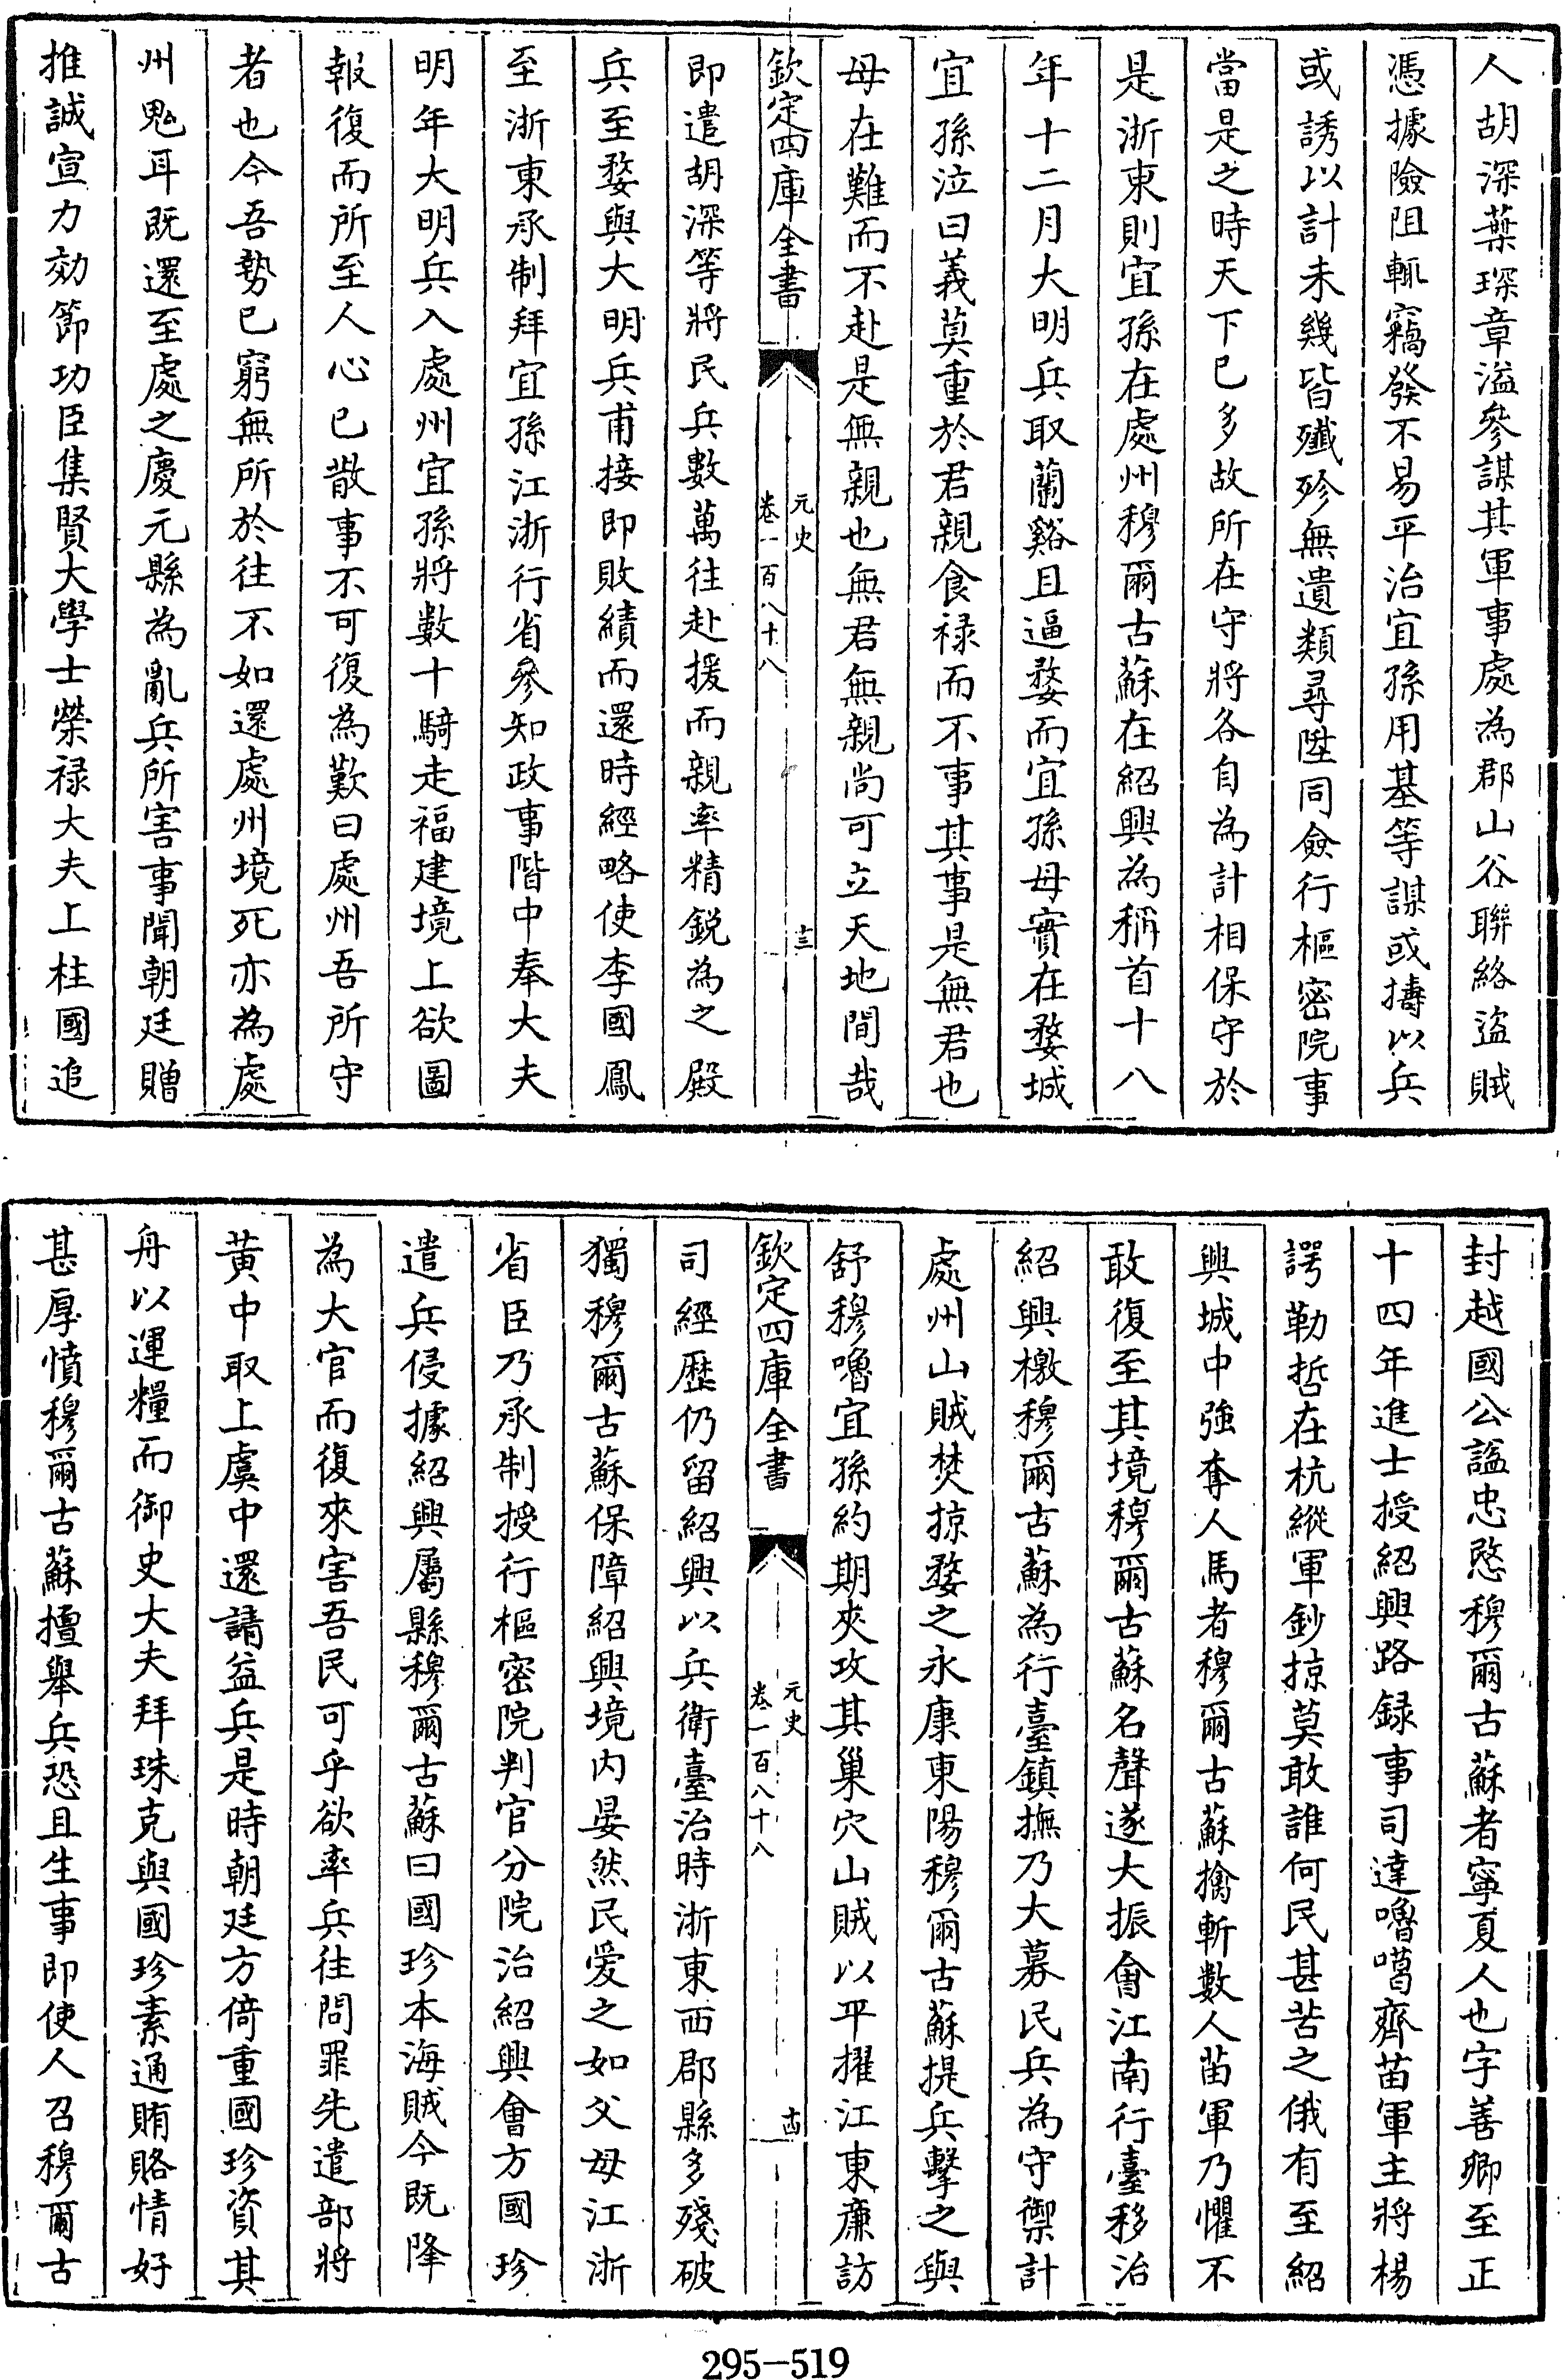 人胡深葉琛章溢參謀其軍事處為郡山谷聯絡盜賊
憑據險阻輒竊發不易平治宜孫用基等謀或擣以兵
或誘以計未幾皆殲殄無遺類尋陞同僉行樞密院事
當是之時天下已多故所在守將各自為計相保守於
是浙東則宜孫在處州穆爾古蘇在紹興為稱首十八
年十二月大明兵取蘭谿且逼婺而宜孫母實在婺城
宜孫泣曰義莫重於君親食祿而不事其事是無君也
母在難而不赴是無親也無君無親尚可立天地間哉
欽定四庫全書
元史
卷一百八十八
十三
即遣胡深等將民兵數萬往赴援而親率精銳為之殿
兵至婺與大明兵甫接即敗績而還時經略使李國鳳
至浙東承制拜宜孫江浙行省參知政事階中奉大夫
明年大明兵入處州宜孫將數十騎走福建境上欲圖
報復而所至人心已散事不可復為歎曰處州吾所守
者也今吾勢已窮無所於往不如還處州境死亦為處
州鬼耳既還至處之慶元縣為亂兵所害事聞朝廷贈
推誠宣力効節功臣集賢大學士榮祿大夫上柱國追
封越國公諡忠愍穆爾古蘇者寧夏人也字善卿至正
十四年進士授紹興路錄事司達嚕噶齊苗軍主將楊
諤勒哲在杭縱軍鈔掠莫敢誰何民甚苦之俄有至紹
興城中強奪人馬者穆爾古蘇擒斬數人苗軍乃懼不
敢復至其境穆爾古蘇名聲遂大振會江南行臺移治
紹興檄穆爾古蘇為行臺鎮撫乃大募民兵為守禦計
處州山賊焚掠婺之永康東陽穆爾古蘇提兵擊之與
舒穆嚕宜孫約期夾攻其巢穴山賊以平擢江東廉訪
欽定四庫全書
元史
卷一百八十八
十四
司經歷仍留紹興以兵衛臺治時浙東西郡縣多殘破
獨穆爾古蘇保障紹興境內晏然民愛之如父母江浙
省臣乃承制授行樞密院判官分院治紹興會方國珍
遣兵侵據紹興屬縣穆爾古蘇曰國珍本海賊今既降
為大官而復來害吾民可乎欲率兵往問罪先遣部將
黃中取上虞中還請益兵是時朝廷方倚重國珍資其
舟以運糧而御史大夫拜珠克與國珍素通賄賂情好
甚厚憤穆爾古蘇擅舉兵恐且生事即使人召穆爾古
295-519